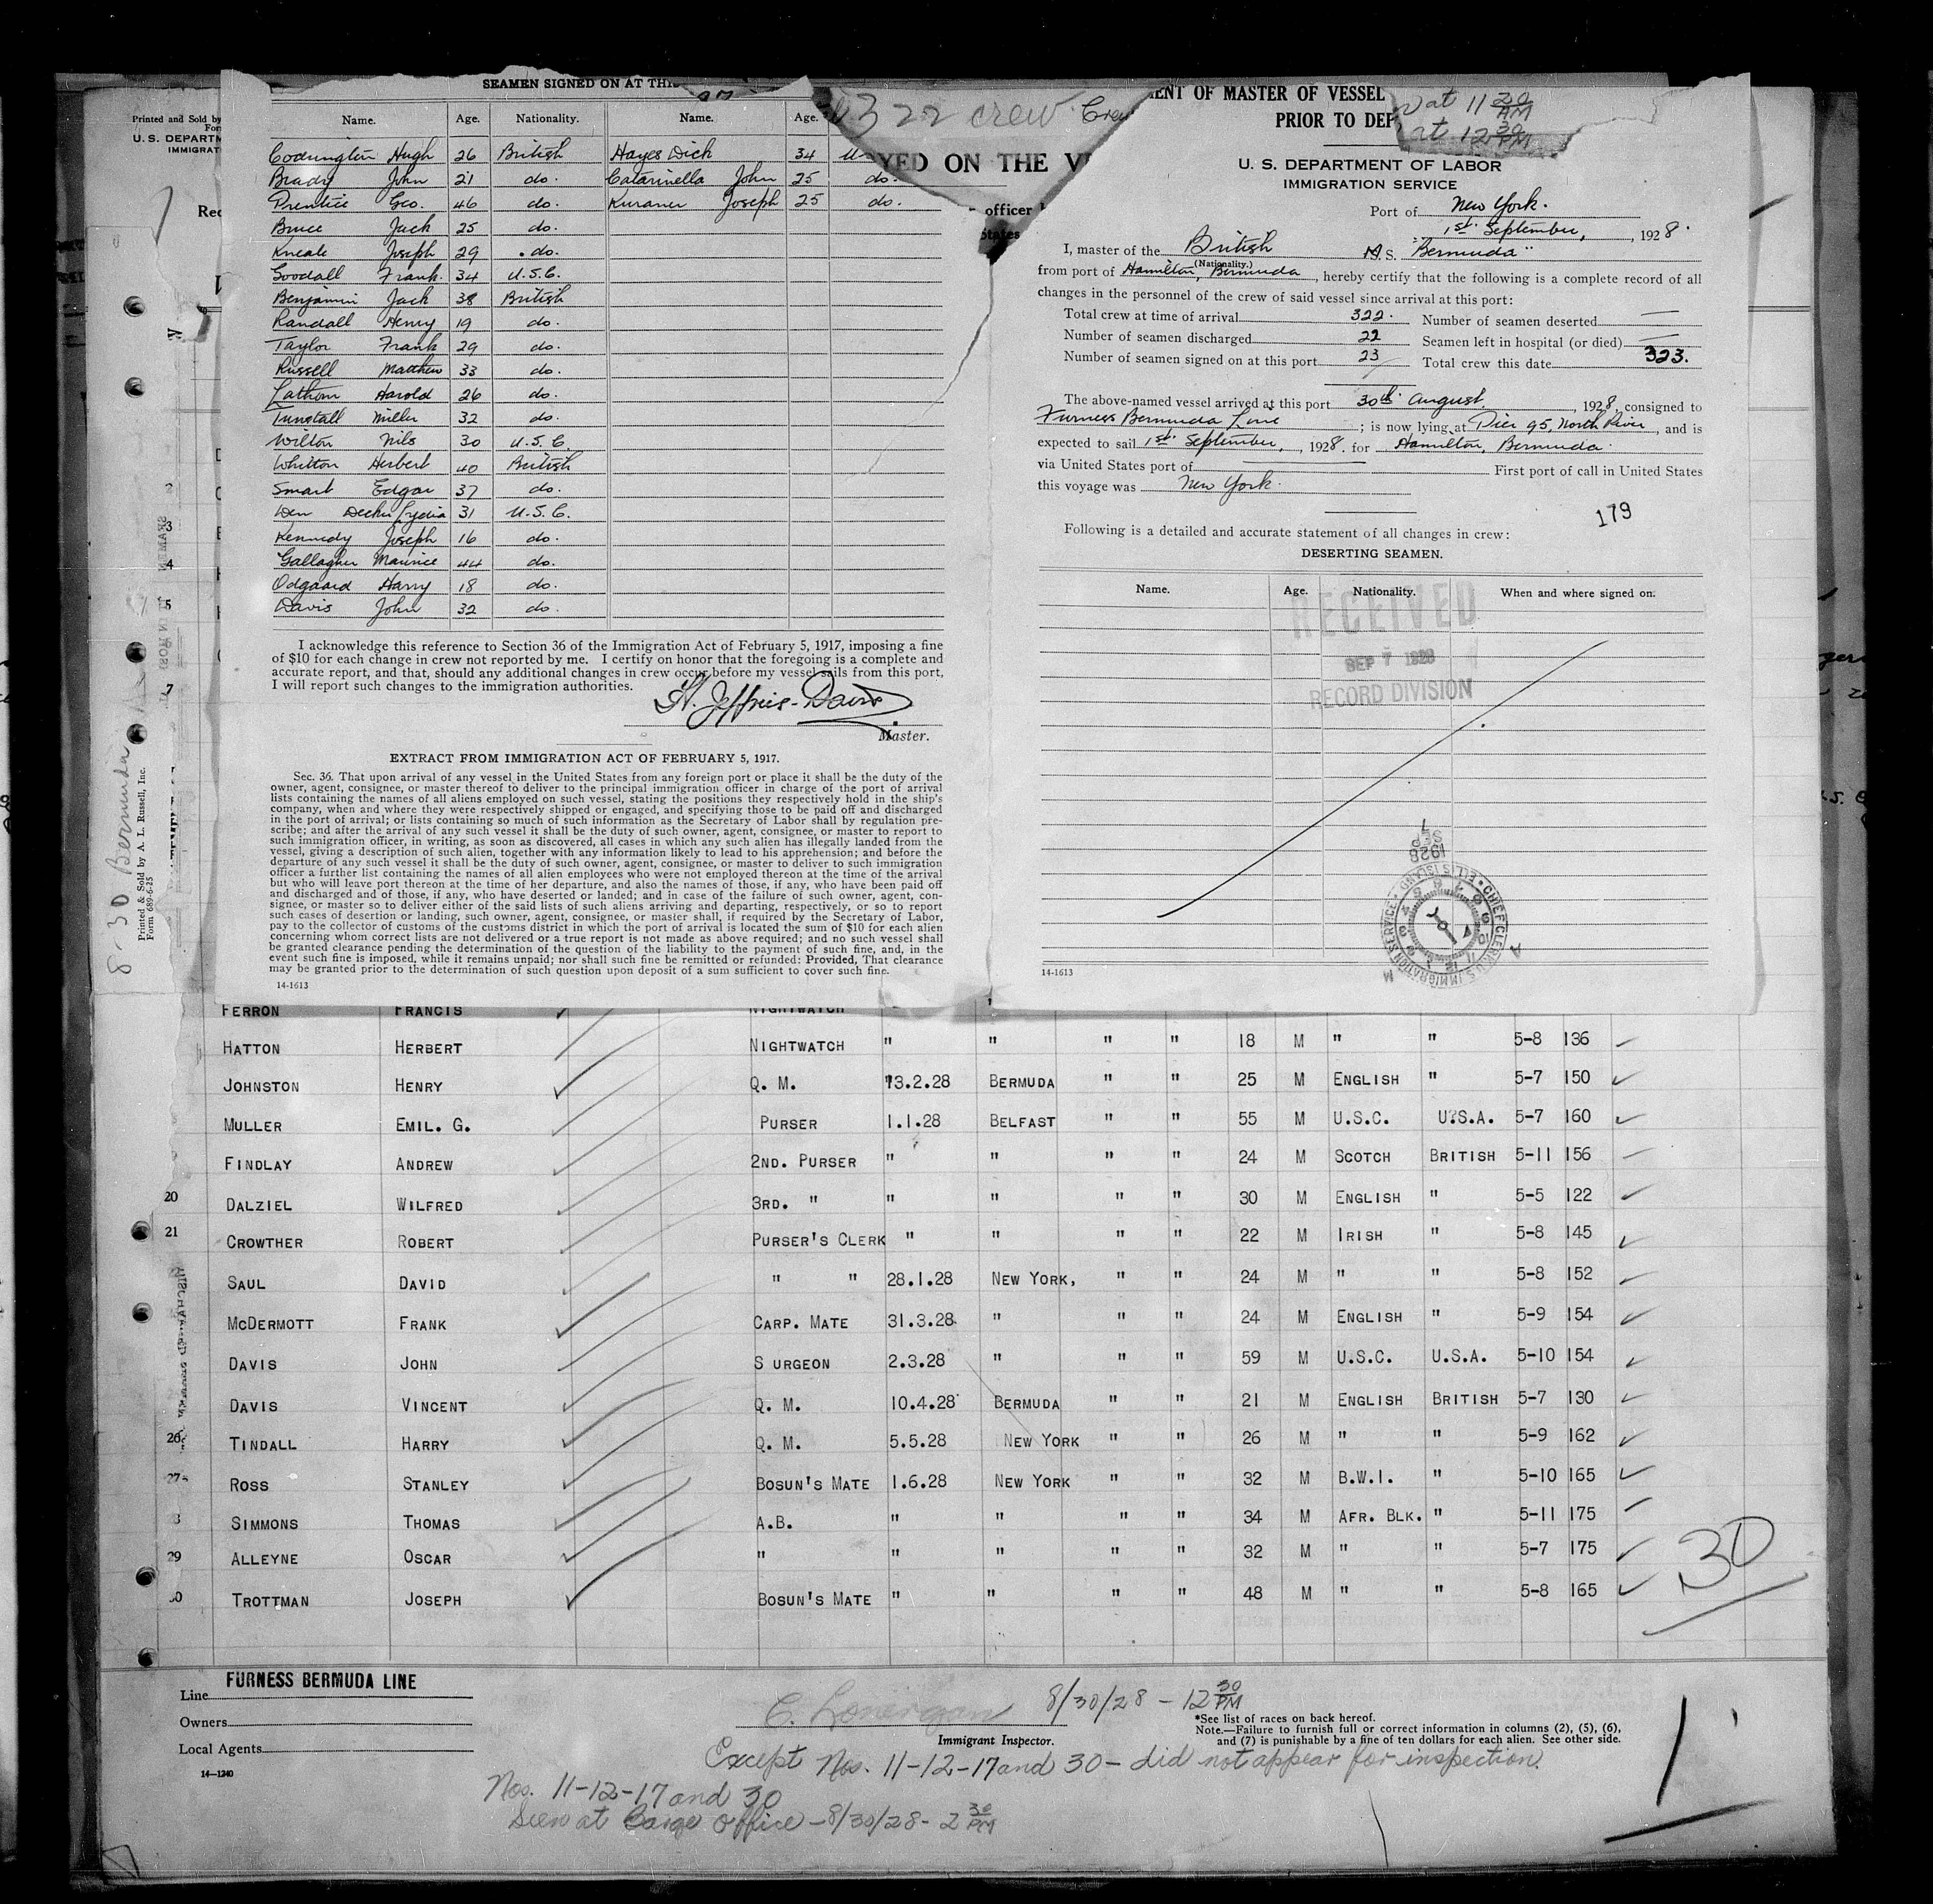 SEAMEN SIGNED ON AT THIS
Name. Age. Nationality. Name. Age.
Codrington Hugh 26 British Hayes Dick 34 U.
Brady John 21 do. Catarinella John 25 do.
Prentice Geo. 46 do. Kuraner Joseph 25 do.
Bruce Jack 25 do.
Kneale Joseph 29 do.
Goodall Frank 34 U.S.C.
Benjamin Jack 38 British
Randall Henry 19 do.
Taylor Frank 29 do.
Russell Matthew 33 do.
Lathom Harold 26 do.
Tunstall Miller 32 do.
Wilton Nils 30 U.S.C.
Whitton Herbert 40 British
Smart Edgar 37 do.
Den Decker Lydia 31 U.S.C.
Kennedy Joseph 16 do.
Gallagher Maurice 44 do.
Odgaard Harry 18 do.
Davis John 32 do.
I acknowledge this reference to Section 36 of the Immigration Act of February 5, 1917, imposing a fine
of $10 for each change in crew not reported by me. I certify on honor that the foregoing is a complete and
accurate report, and that, should any additional changes in crew occur before my vessel sails from this port,
I will report such changes to the immigration authorities.
H. Jeffries-Davis
Master.
EXTRACT FROM IMMIGRATION ACT OF FEBRUARY 5, 1917.
Sec. 36. That upon arrival of any vessel in the United States from any foreign port or place it shall be the duty of the
owner, agent, consignee, or master thereof to deliver to the principal immigration officer in charge of the port of arrival
lists containing the names of all aliens employed on such vessel, stating the positions they respectively hold in the ship's
company, when and where they were respectively shipped or engaged, and specifying those to be paid off and discharged
in the port of arrival; or lists containing so much of such information as the Secretary of Labor shall by regulation pre-
scribe; and after the arrival of any such vessel it shall be the duty of such owner, agent, consignee, or master to report to
such immigration officer, in writing, as soon as discovered, all cases in which any such alien has illegally landed from the
vessel, giving a description of such alien, together with any information likely to lead to his apprehension; and before the
departure of any such vessel it shall be the duty of such owner, agent, consignee, or master to deliver to such immigration
officer a further list containing the names of all alien employees who were not employed thereon at the time of the arrival
but who will leave port thereon at the time of her departure, and also the names of those, if any, who have been paid off
and discharged and of those, if any, who have deserted or landed; and in case of the failure of such owner, agent, con-
signee, or master so to deliver either of the said lists of such aliens arriving and departing, respectively, or so to report
such cases of desertion or landing, such owner, agent, consignee, or master shall, if required by the Secretary of Labor,
pay to the collector of customs of the customs district in which the port of arrival is located the sum of $10 for each alien
concerning whom correct lists are not delivered or a true report is not made as above required; and no such vessel shall
be granted clearance pending the determination of the question of the liability to the payment of such fine, and, in the
event such fine is imposed, while it remains unpaid; nor shall such fine be remitted or refunded: Provided, That clearance
may be granted prior to the determination of such question upon deposit of a sum sufficient to cover such fine.
14-1613
322 crew Crew
YED ON THE V
officer
States
ENT OF MASTER OF VESSEL
PRIOR TO DEP
at 11 20 AM
at 12 30 PM
U. S. DEPARTMENT OF LABOR
IMMIGRATION SERVICE
Port of New York.
1st September, , 1928.
I, master of the British M.S. "Bermuda"
(Nationality.)
from port of Hamilton, Bermuda, hereby certify that the following is a complete record of all
changes in the personnel of the crew of said vessel since arrival at this port:
Total crew at time of arrival 322. Number of seamen deserted —
Number of seamen discharged 22 Seamen left in hospital (or died) —
Number of seamen signed on at this port 23 Total crew this date 323.
The above-named vessel arrived at this port 30th August, 1928, consigned to
Furness Bermuda Line; is now lying at Pier 95, North River, and is
expected to sail 1st September, , 1928. for Hamilton, Bermuda.
via United States port of First port of call in United States
this voyage was New York.
179
Following is a detailed and accurate statement of all changes in crew:
DESERTING SEAMEN.
Name. Age. Nationality. When and where signed on.
RECEIVED
SEP 7 1928
RECORD DIVISION
SEP 7 1928
CHIEF CLERK U.S. IMMIGRATION SERVICE • ELLIS ISLAND
14-1613
Printed and Sold by
U. S. DEPARTM
IMMIGRAT
8-30 Bermuda
Printed & Sold by A. L. Russell, Inc.
Form 689-6-25
FERRON FRANCIS NIGHTWATCH
HATTON HERBERT NIGHTWATCH " " " " 18 M " " 5-8 136
JOHNSTON HENRY Q. M. 13.2.28 BERMUDA " " 25 M ENGLISH " 5-7 150
MULLER EMIL. G. PURSER 1.1.28 BELFAST " " 55 M U.S.C. U.S.A. 5-7 160
FINDLAY ANDREW 2ND. PURSER " " " " 24 M SCOTCH BRITISH 5-11 156
20 DALZIEL WILFRED 3RD. " " " " " 30 M ENGLISH " 5-5 122
21 CROWTHER ROBERT PURSER'S CLERK " " " " 22 M IRISH " 5-8 145
SAUL DAVID " " 28.1.28 NEW YORK, " " 24 M " " 5-8 152
MCDERMOTT FRANK CARP. MATE 31.3.28 " " " 24 M ENGLISH " 5-9 154
DAVIS JOHN S URGEON 2.3.28 " " " 59 M U.S.C. U.S.A. 5-10 154
DAVIS VINCENT Q. M. 10.4.28 BERMUDA " " 21 M ENGLISH BRITISH 5-7 130
26 TINDALL HARRY Q. M. 5.5.28 NEW YORK " " 26 M " " 5-9 162
27 ROSS STANLEY BOSUN'S MATE 1.6.28 NEW YORK " " 32 M B.W.I. " 5-10 165
8 SIMMONS THOMAS A.B. " " " " 34 M AFR. BLK. " 5-11 175
29 ALLEYNE OSCAR " " " " " 32 M " " 5-7 175
30 TROTTMAN JOSEPH BOSUN'S MATE " " " " 48 M " " 5-8 165
30
Line FURNESS BERMUDA LINE
Owners
Local Agents
14—1240
C. Lonergan 8/30/28 - 12 30 PM
Immigrant Inspector.
*See list of races on back hereof.
Note.—Failure to furnish full or correct information in columns (2), (5), (6),
and (7) is punishable by a fine of ten dollars for each alien. See other side.
Except Nos. 11-12-17 and 30 - did not appear for inspection.
Nos. 11-12-17 and 30
Seen at Barge Office - 8/30/28 - 2 30 PM
1